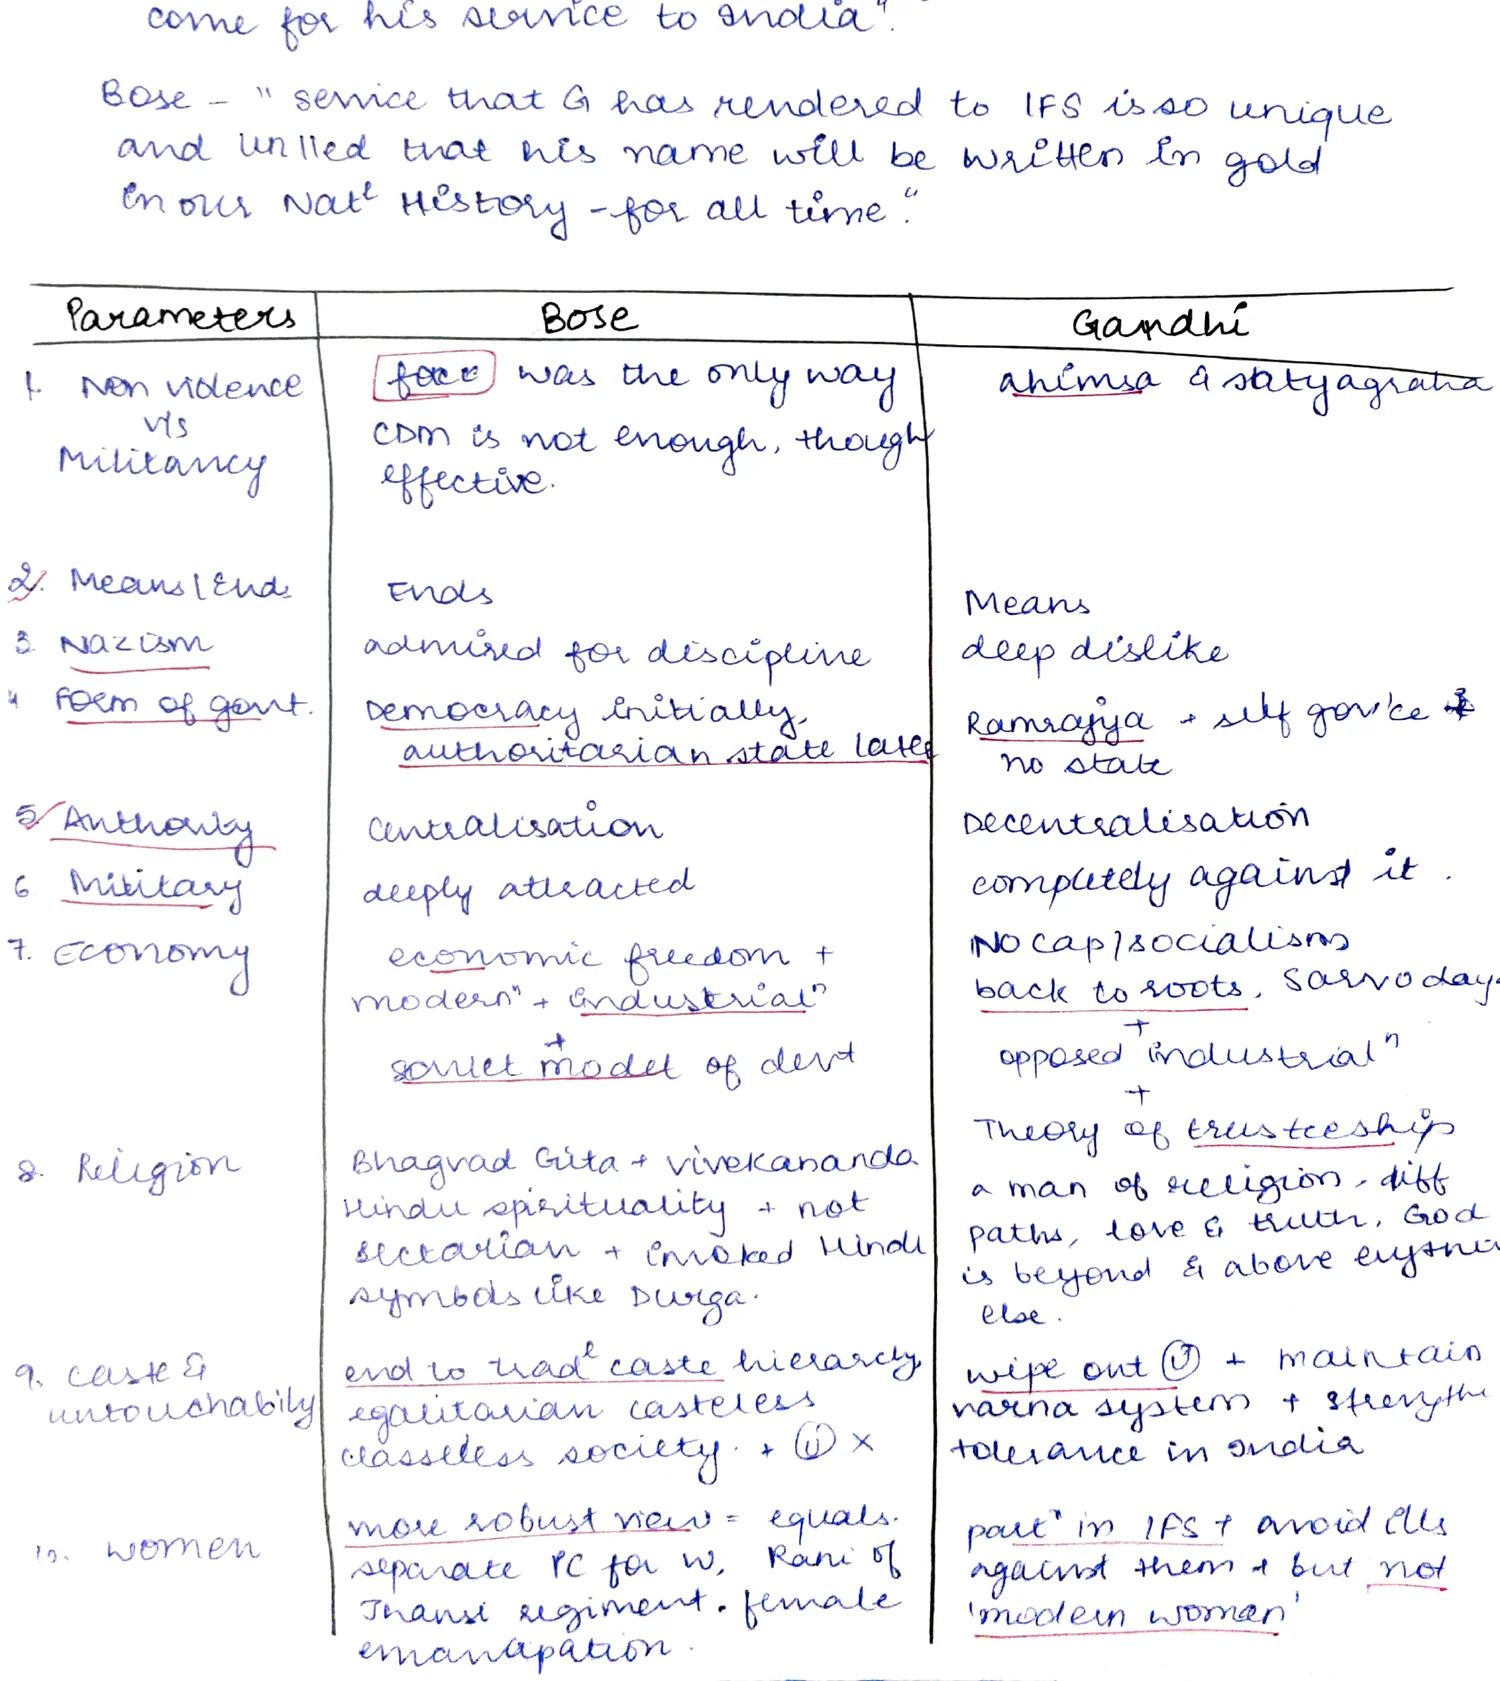 come for his service to India".
Bose - " service that G has rendered to IFS is so unique
and unlled that his name will be written in gold
in our Natl History - for all time".
Parameters Bose Gandhi
1. Non violence force was the only way ahimsa & satyagraha
v/s CDM is not enough, though
Militancy effective.
2. Means/Ends Ends Means
3. Nazism admired for discipline deep dislike
4 Form of govt. Democracy initially, Ramrajya + self gov'ce
authoritarian state later no state
5. Authority Centralisation Decentralisation
6. Military deeply attracted completely against it.
7. Economy economic freedom + No cap/socialism
modernn + industrialn back to roots, Sarvoday
+ +
soviet model of devt opposed industrialn
+
Theory of trusteeship
8. Religion Bhagvad Gita + Vivekananda a man of religion, diff
Hindu spirituality + not paths, love & truth, God
sectarian + invoked Hindu is beyond & above
symbols like Durga. else.
9. caste & end to tradl caste hierarchy wipe out U + maintain
untouchability egalitarian casteless varna system +
classless society. + U × tolerance in India
10. women more robust view = equals. partn in IFS + avoid ills
separate PC for W, Rani of against them + but not
Jhansi regiment. female 'modern woman'
emancipation.